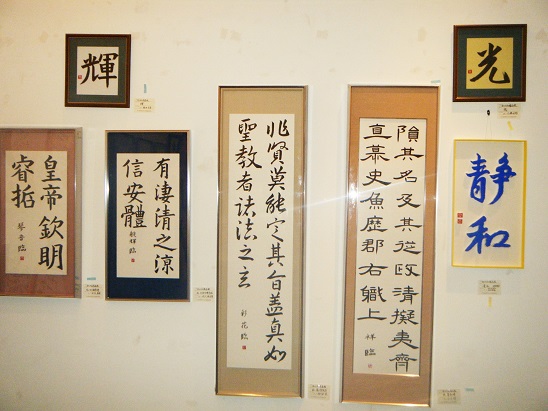 輝
光
皇帝欽明
睿哲
有淒清之涼
信安體
臨
兆賢莫能定其旨蓋真如
聖教者諸法之玄
彩花臨
隕其名及其從政清擬夷齊
直慕史魚歷郡右職上
祥臨
静和